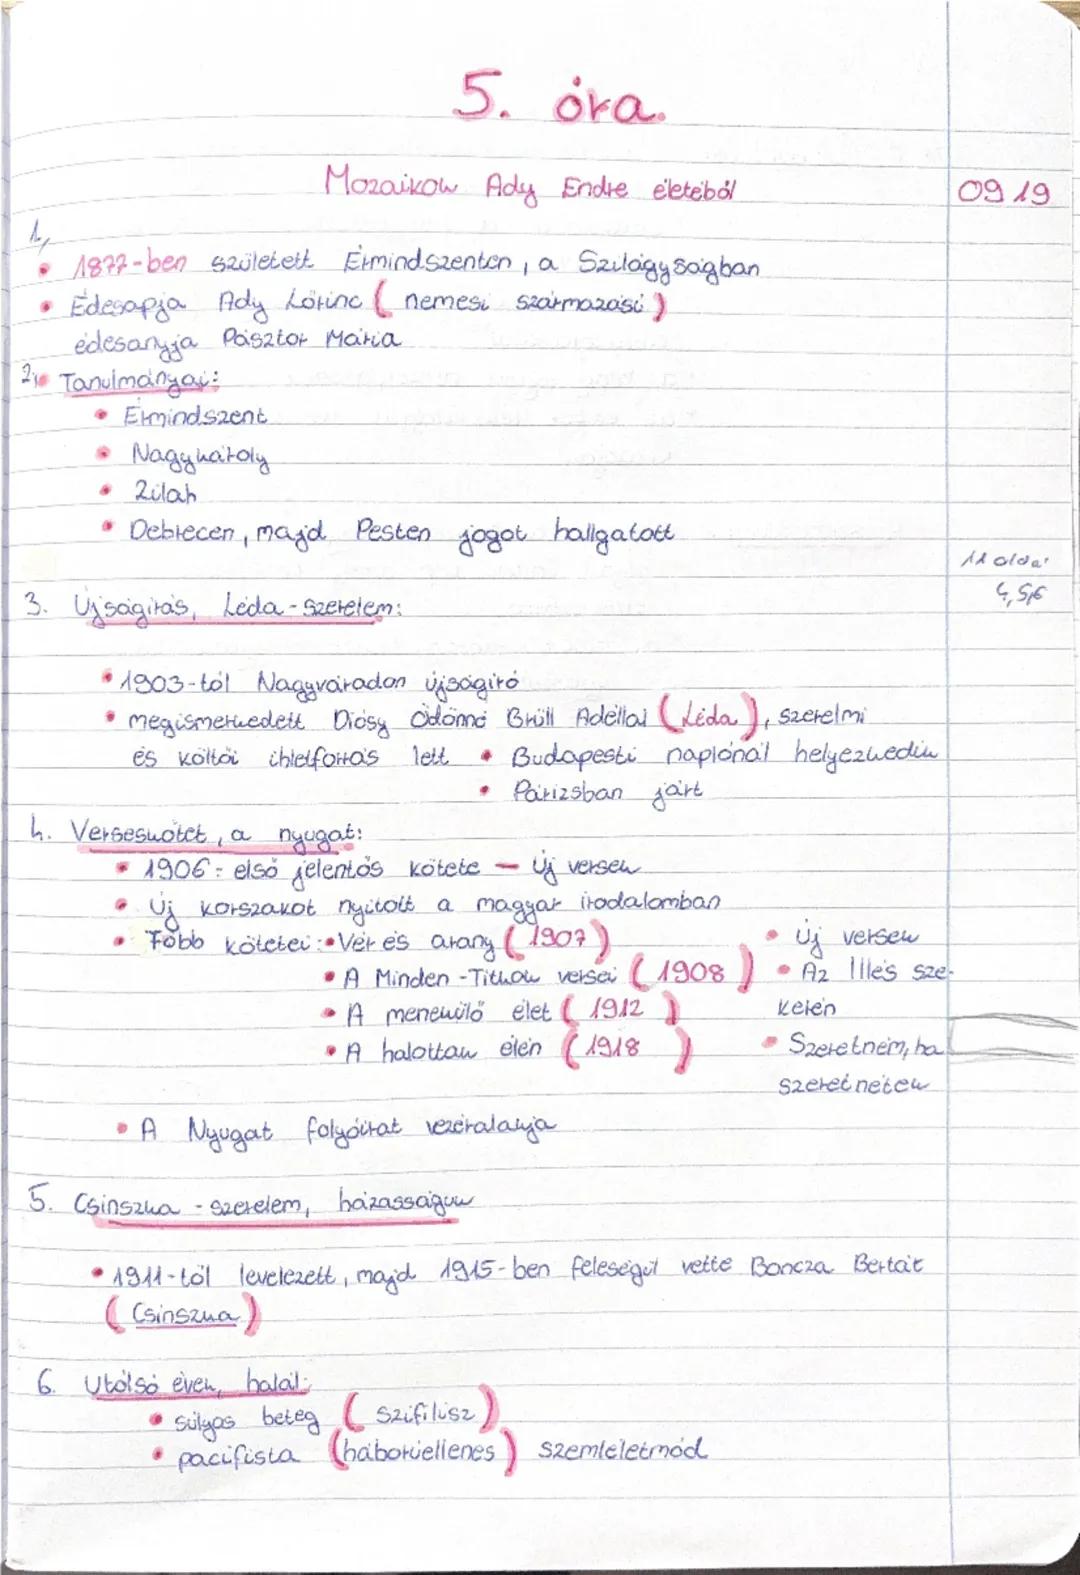 5. óra.
Mozaikok Ady Endre életéből
09 19
1,
• 1877-ben született Érmindszenten, a Szilágyságban
• Édesapja Ady Lőrinc (nemesi származású)
édesanyja Pásztor Mária
2, • Tanulmányai:
• Érmindszent
• Nagykároly
• Zilah
• Debrecen, majd Pesten jogot hallgatott
11 oldal
4,5,6
3. Újságírás, Léda-szerelem:
• 1903-tól Nagyváradon újságíró
• megismerkedett Diósy Ödönné Brüll Adéllal (Léda), szerelmi
és költői ihletforrás lett • Budapesti naplónál helyezkedik
• Párizsban járt
4. Verseskötet, a nyugat:
• 1906: első jelentős kötete – Új versek
• Új korszakot nyitott a magyar irodalomban
• Főbb kötetei: • Vér és arany (1907) • Új versek
• A Minden-Titkok versei (1908) • Az Illés sze-
• A menekülő élet (1912) kerén
• A halottak élén (1918) • Szeretném, ha
szeretnétek
• A Nyugat folyóirat vezéralakja
5. Csinszka - szerelem, házasságuk
• 1911-től levelezett, majd 1915-ben feleségül vette Boncza Bertát
(Csinszka)
6. Utolsó évek, halál:
• súlyos beteg (szifilisz)
• pacifista (háborúellenes) szemléletmód